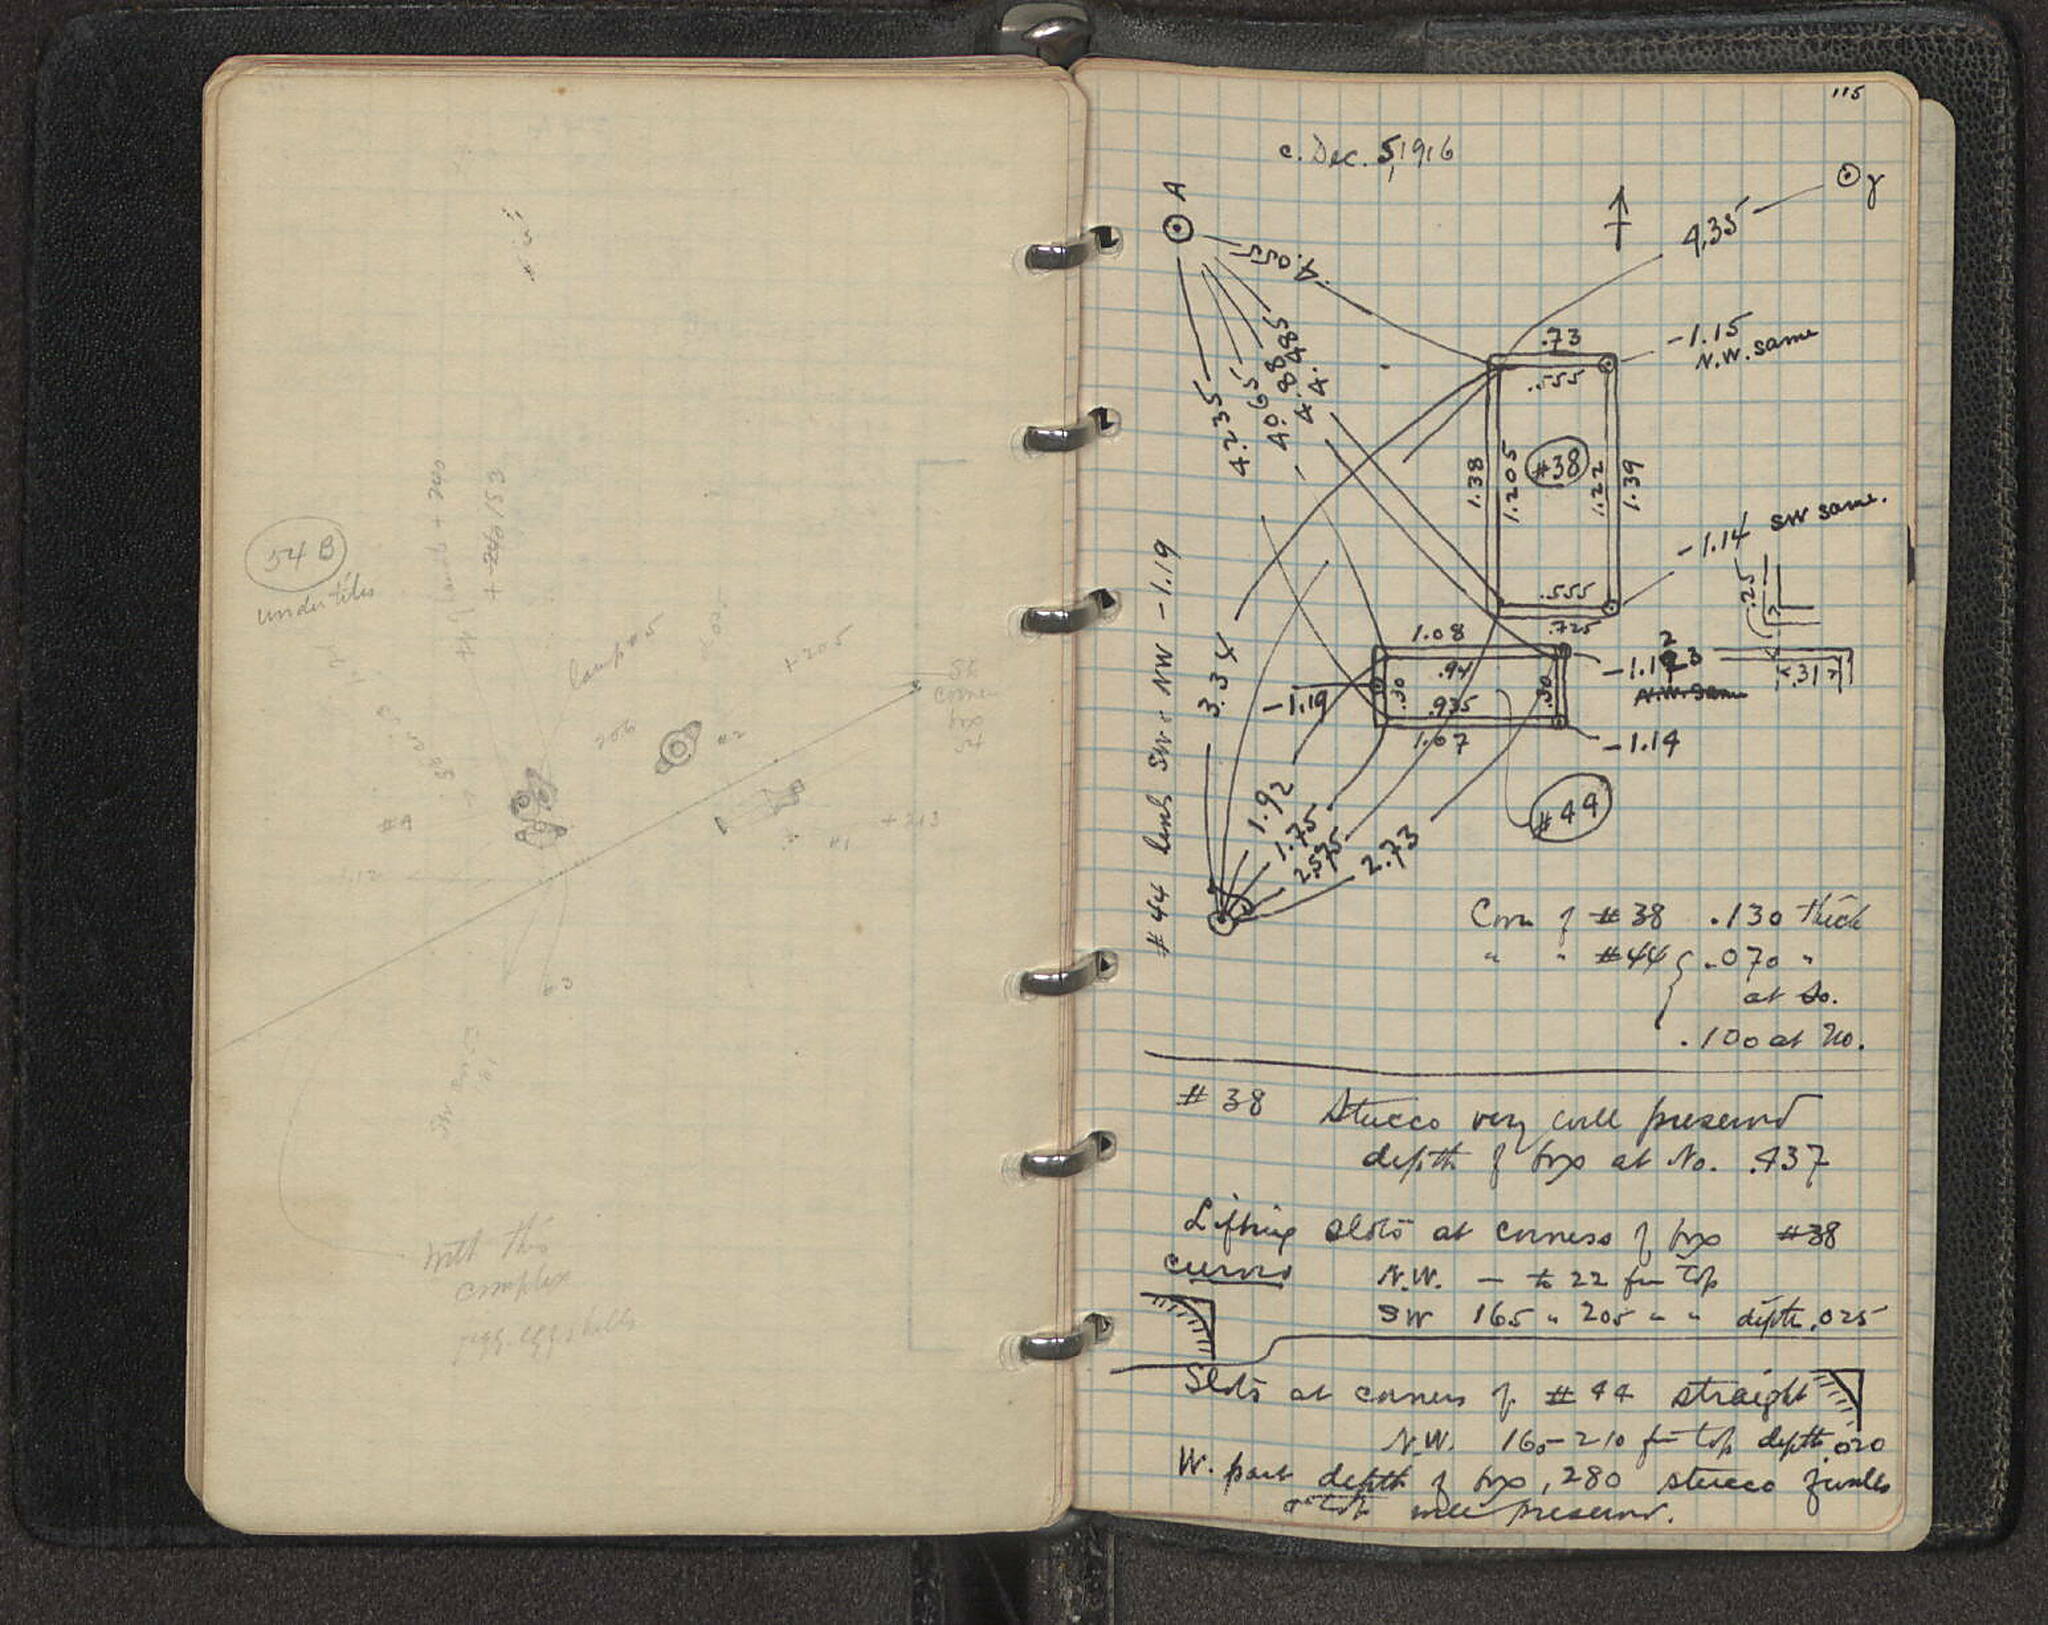 54 B
under tiles
+ 153
lamp #5
+ 205
206
#2
#4
#1
+ 213
SE
corner
box
54
63
with this
complex
frgg. eggshells
115
c. Dec. 5, 1916
A
γ
4.055
4.35
4.235
4.065
4.88
4.485
.73
.555
-1.15
N.W. same
#38
1.38
1.205
1.22
1.39
-1.14 SW same.
.555
.725
.25
.31
1.08
.94
.30
.935
.30
1.07
-1.19
-1.14
#44
#44 level SW + NW -1.19
3.34
1.92
1.75
2.575
2.73
Cover of #38 .130 thick
" " #44 .070 "
at So.
.100 at No.
#38 Stucco very well preserved
depth of box at No. .437
Lifting slots at corners of box #38
curved N.W. — to 22 fm top
SW 165 " 205 " " depth .025
Slots at corners of #44 straight
N.W. 160-210 fm top depth .020
W. part depth of box .280 stucco of walls
well preserved.